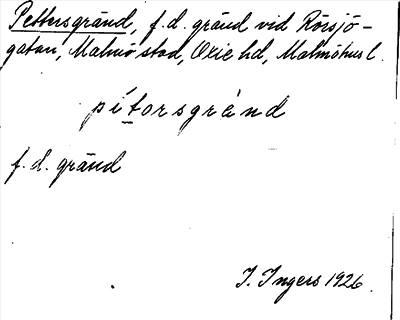 Pettersgränd, f. d. gränd vid Rörsjö-
gatan, Malmö stad, Oxie hd, Malmöhus l.
pítorsgränd
f. d. gränd
I. Ingers 1926.